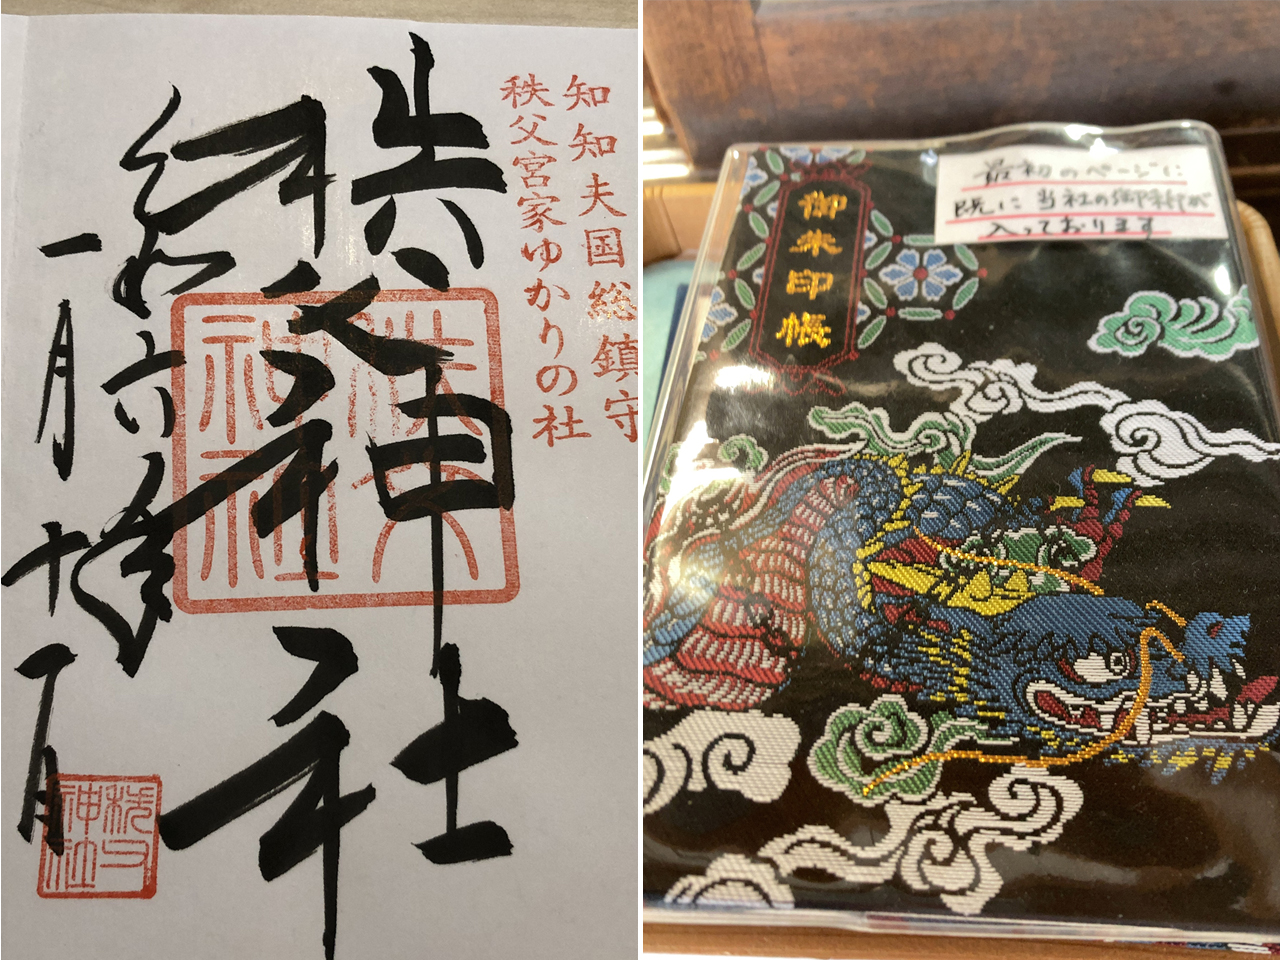 知知夫国総鎮守
秩父宮家ゆかりの社
秩父神社
令和六年
一月十一日
秩父神社
秩父神社
御朱印帳
最初のページに
既に当社の御朱印が
入っております